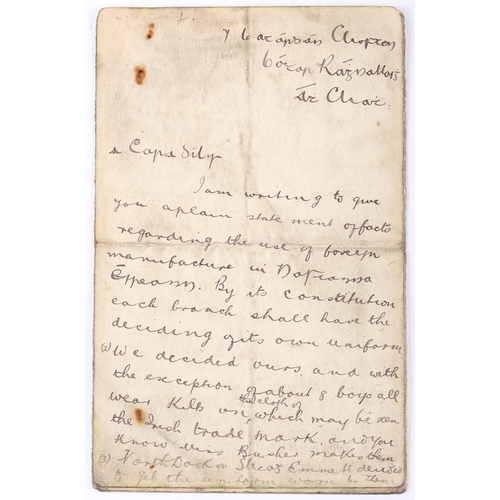 7 Garadán Clifton
Bótar Ragnallais
Át Cliat.
A Cara Dílis
I am writing to give
you a plain statement of facts
regarding the use of foreign
manufacture in Na Fianna
Éireann. By its Constitution
each branch shall have the
deciding of its own uniform
(2) We decided ours, and with
the exception of about 8 boys all
the cloth of
wear Kilts on, which may be seen
the Irish trade mark, and you
know Miss Bushes makes them
(3) North Dock or Sluag Emmett decided
to get the uniform worn by them